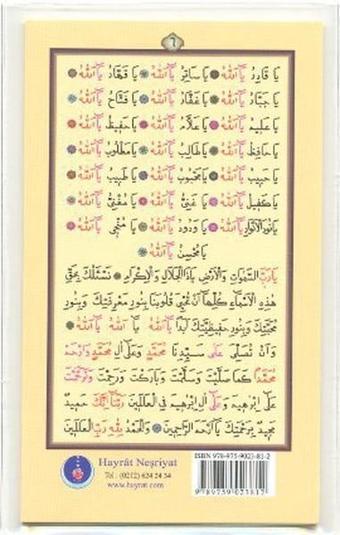 ٦
يَا قَادِرُ يَا اَللّٰهُ يَا سَاتِرُ يَا اَللّٰهُ يَا قَهَّارُ يَا اَللّٰهُ
يَا جَبَّارُ يَا اَللّٰهُ يَا غَفَّارُ يَا اَللّٰهُ يَا فَتَّاحُ يَا اَللّٰهُ
يَا عَلِيمُ يَا اَللّٰهُ يَا عَلَّامُ يَا اَللّٰهُ يَا حَفِيظُ يَا اَللّٰهُ
يَا حَافِظُ يَا اَللّٰهُ يَا طَالِبُ يَا اَللّٰهُ يَا مَطْلُوبُ يَا اَللّٰهُ
يَا حَبِيبُ يَا اَللّٰهُ يَا مَحْبُوبُ يَا اَللّٰهُ يَا طَبِيبُ يَا اَللّٰهُ
يَا كَفِيلُ يَا اَللّٰهُ يَا غَنِيُّ يَا اَللّٰهُ يَا مُغْنِي يَا اَللّٰهُ
يَا نُورَ الْاَنْوَارِ يَا اَللّٰهُ يَا وَدُودُ يَا اَللّٰهُ يَا مُنْجِي يَا اَللّٰهُ
يَا مُحْسِنُ يَا اَللّٰهُ
يَا رَبَّ السَّمٰوَاتِ وَالْاَرْضِ يَا ذَا الْجَلَالِ وَالْاِكْرَامِ نَسْئَلُكَ بِحَقِّ
هٰذِهِ الْاَسْمَاءِ كُلِّهَا اَنْ تُحْيِيَ قُلُوبَنَا بِنُورِ مَعْرِفَتِكَ وَبِنُورِ
مَحَبَّتِكَ وَبِنُورِ اَبَدًا يَا اَللّٰهُ يَا اَللّٰهُ يَا اَللّٰهُ
وَاَنْ تُصَلِّيَ عَلٰى سَيِّدِنَا مُحَمَّدٍ وَعَلٰى اٰلِ مُحَمَّدٍ وَارْحَمْ
مُحَمَّدًا كَمَا صَلَّيْتَ وَسَلَّمْتَ وَبَارَكْتَ وَرَحِمْتَ وَتَرَحَّمْتَ
عَلٰى اِبْرٰهِيمَ وَعَلٰى اٰلِ اِبْرٰهِيمَ فِي الْعَالَمِينَ رَبَّنَا اِنَّكَ حَمِيدٌ
مَجِيدٌ بِرَحْمَتِكَ يَا اَرْحَمَ الرَّاحِمِينَ وَالْحَمْدُ لِلّٰهِ رَبِّ الْعَالَمِينَ
Hayrât Neşriyat
Tel : (0212) 624 24 34
www.hayrat.com
ISBN 978-975-9023-81-2
9 789759 023812